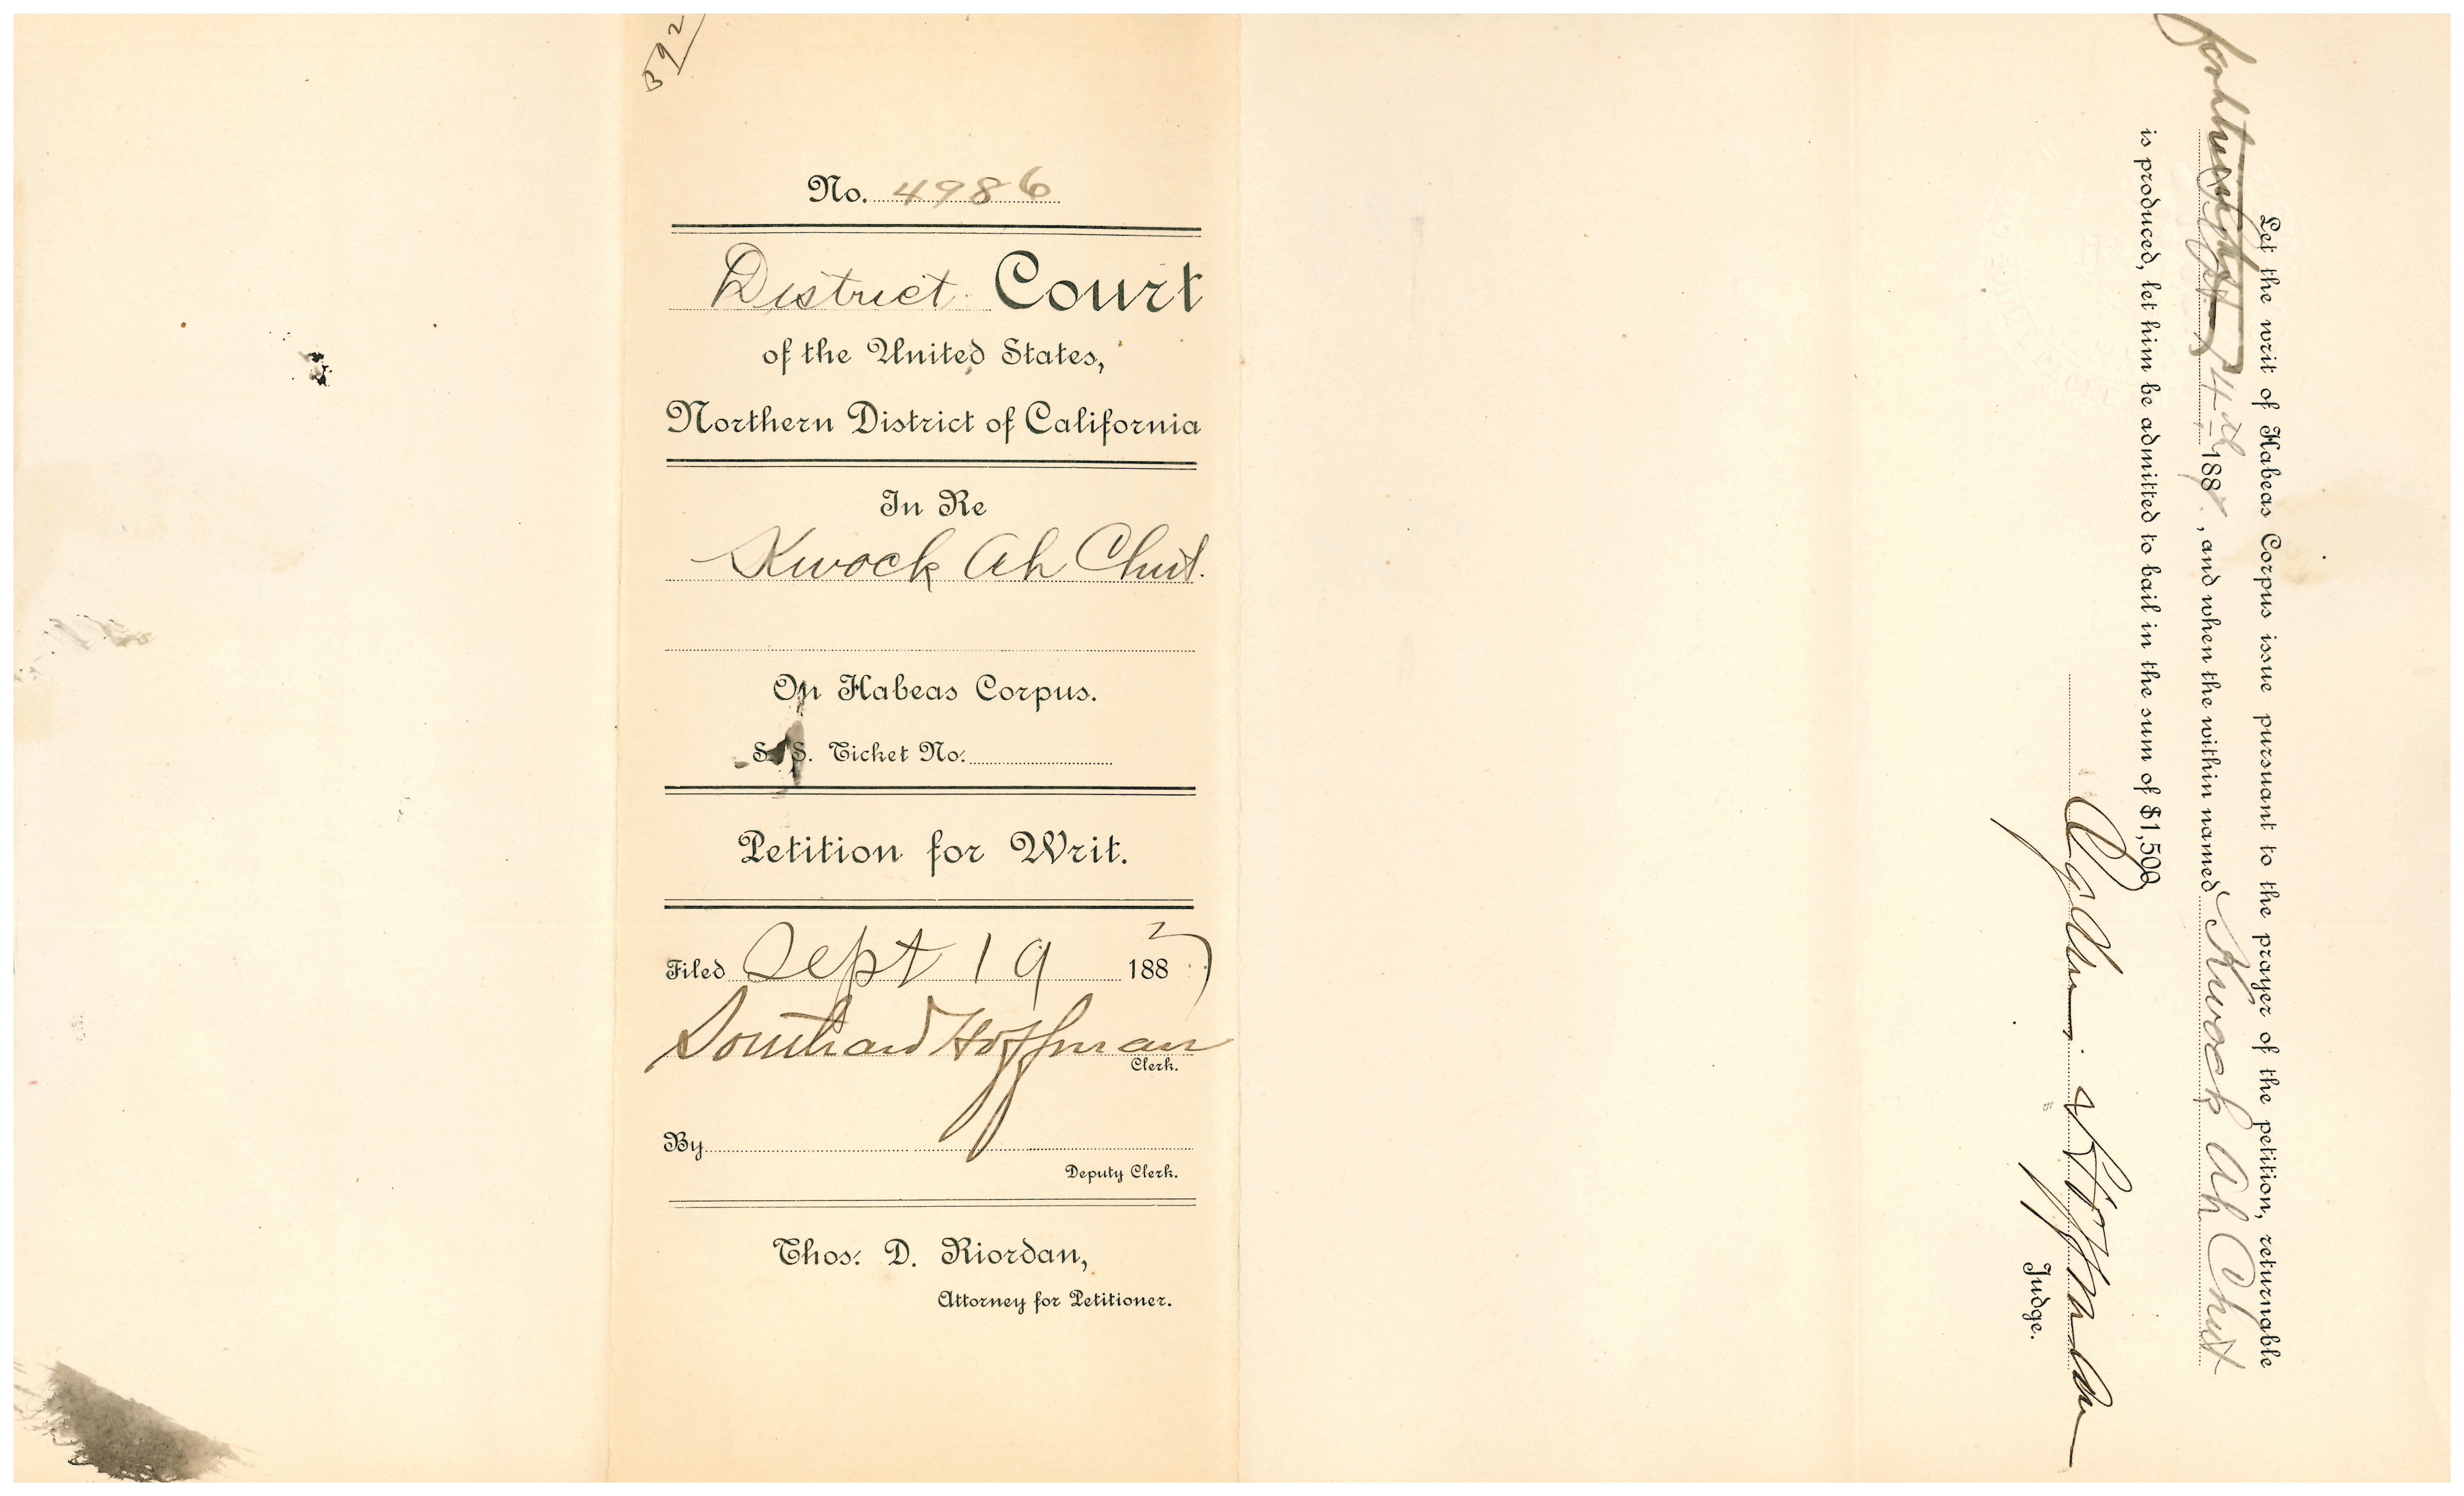 B92
No. 4986
District Court
of the United States,
Northern District of California
In Re
Kwock Ah Chut.
On Habeas Corpus.
S. S. Ticket No.
Petition for Writ.
Filed Sept 19 1887
Southard Hoffman
Clerk.
By
Deputy Clerk.
Thos. D. Riordan,
Attorney for Petitioner.
Let the writ of Habeas Corpus issue pursuant to the prayer of the petition, returnable
forthwith 188 , and when the within named Kwock Ah Chut
is produced, let him be admitted to bail in the sum of $1,500
Hoffman
Judge.